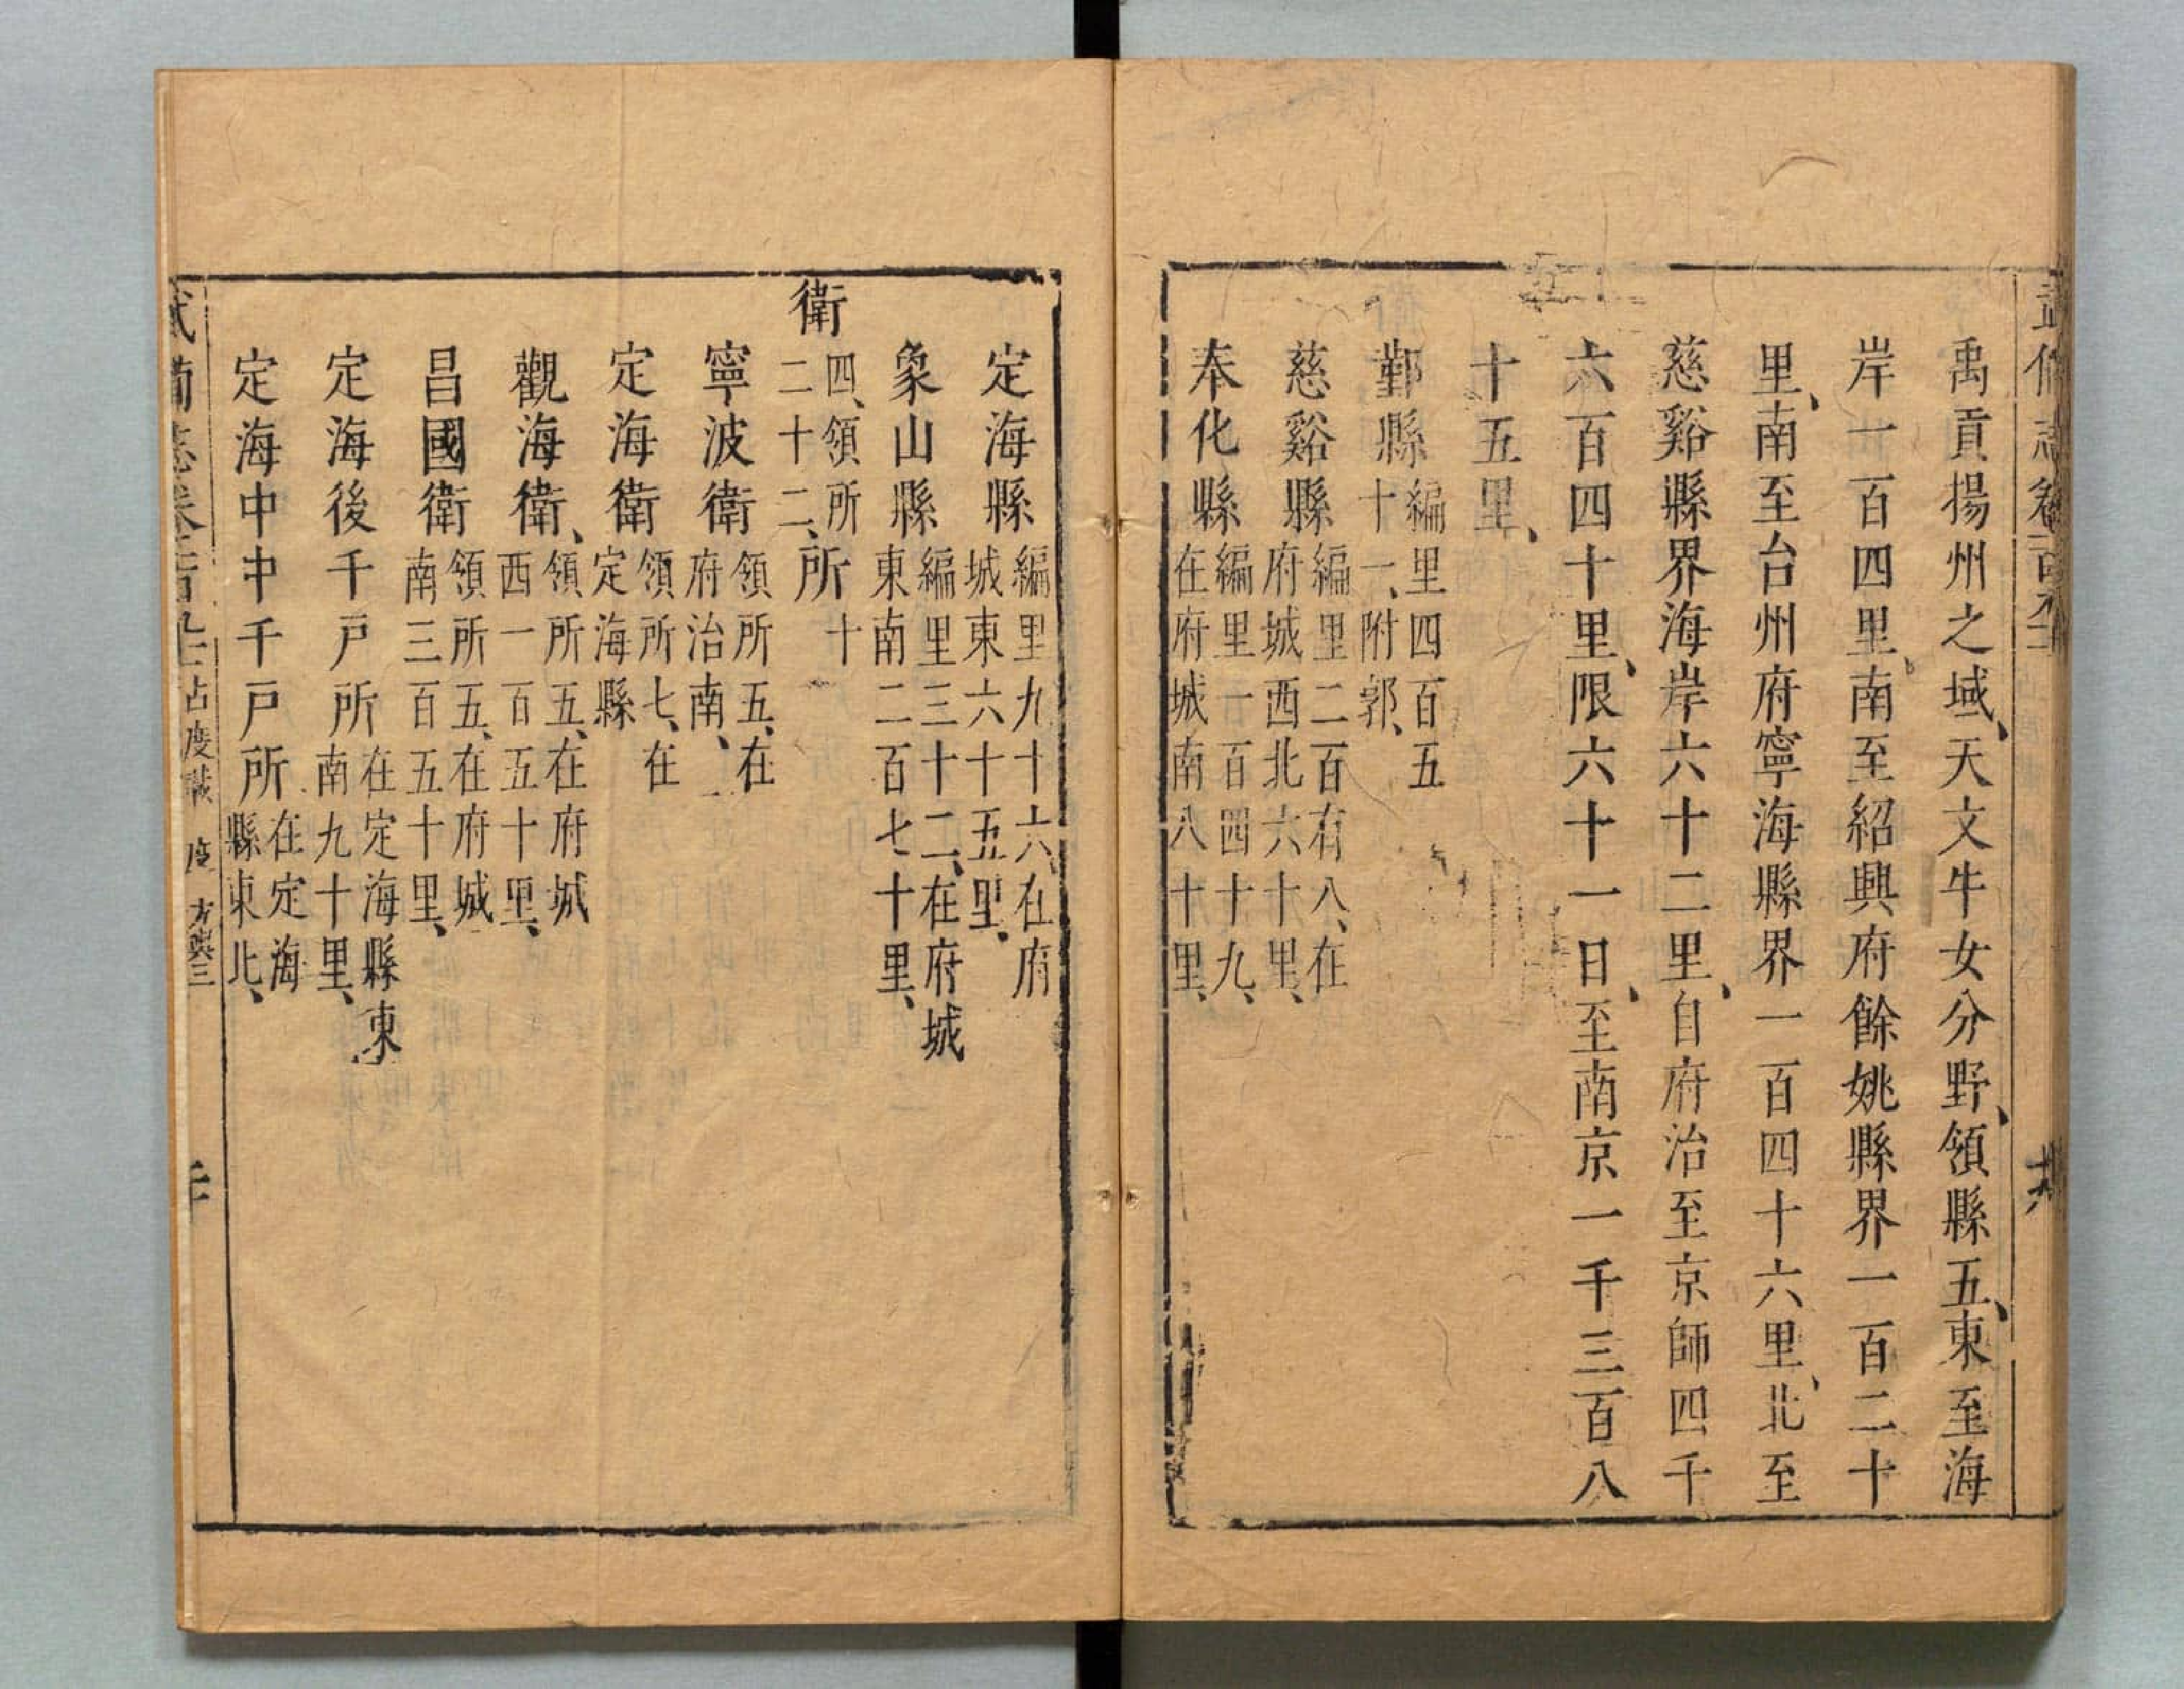 禹貢揚州之域、天文牛女分野、領縣五、東至海
岸一百四里、南至紹興府餘姚縣界一百二十
里、南至台州府寧海縣界一百四十六里、北至
慈谿縣界海岸六十二里、自府治至京師四千
六百四十里、限六十一日、至南京一千三百八
十五里、
鄞縣編里四百五
十一、附郭、
慈谿縣編里二百有八、在
府城西北六十里、
奉化縣編里一百四十九、
在府城南八十里、
定海縣編里九十六、在府
城東六十五里、
象山縣編里三十二、在府城
東南二百七十里、
衛四、領所
二十二、所十
寧波衛領所五、在
府治南、
定海衛領所七、在
定海縣
觀海衛、領所五、在府城
西一百五十里、
昌國衛領所五、在府城
南三百五十里、
定海後千戶所在定海縣東
南九十里、
定海中中千戶所在定海
縣東北、
占度載 度 方輿三